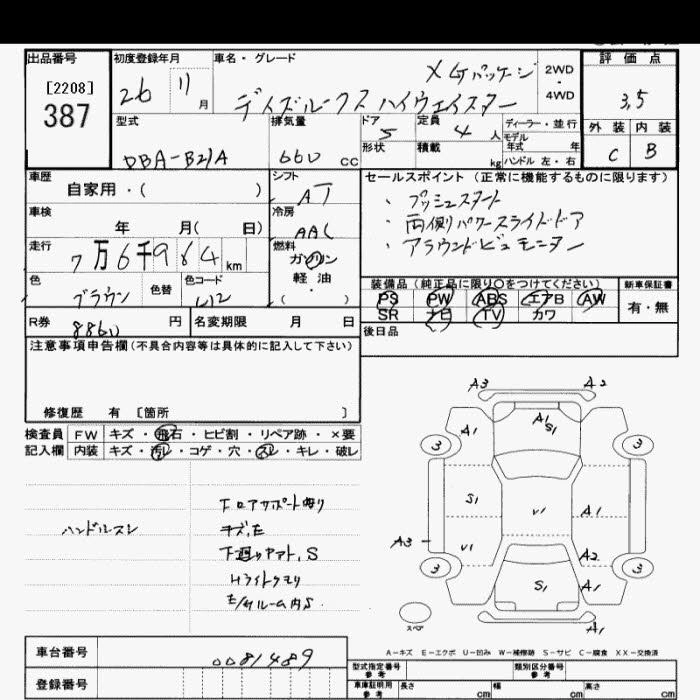 出品番号
[2208]
387
初度登録年月
26 11 月
車名・グレード
メダパッケージ
デイズルークス ハイウェイスター
2WD
・
4WD
評価点
3.5
外装 内装
C B
型式
DBA-B21A
排気量
660 cc
ドア
5
定員
4 人
形状
積載
kg
ディーラー・並行
モデル
年式 年
ハンドル 左・右
車歴
自家用・( )
シフト
AT
セールスポイント (正常に機能するものに限ります)
・プッシュスタート
・両側パワースライドドア
・アラウンドビューモニター
車検
年 月( 日)
冷房
AAC
走行
7万6千964 km
燃料
ガソリン
軽・油
( ・ )
色
ブラウン
色替
色コード
装備品 (純正品に限り〇をつけてください)
PS PW ABS エアB AW
SR ナビ TV カワ
新車保証書
有・無
R券
8860 円
名変期限 月 日
後日品
注意事項申告欄(不具合内容等は具体的に記入して下さい)
修復歴 有 [箇所 ]
検査員
記入欄
FW キズ・飛石・ヒビ割・リペア跡・×要
内装 キズ・汚レ・コゲ・穴・スレ・キレ・破レ
ハンドルスレ
キズ,E
S
Hライトクモリ
A3 A2
A1 A1 S1
3 3
S1 V1 A1
A3 V1 A2
3 S1 A1 3
スペア
A1
A=キズ E=エクボ U=凹み W=補修跡 S=サビ C=腐食 XX=交換済
車台番号
0081489
登録番号
型式指定番号
参考
類別区分番号
参考
車庫証明用
参考
長さ cm
幅 cm
高さ cm